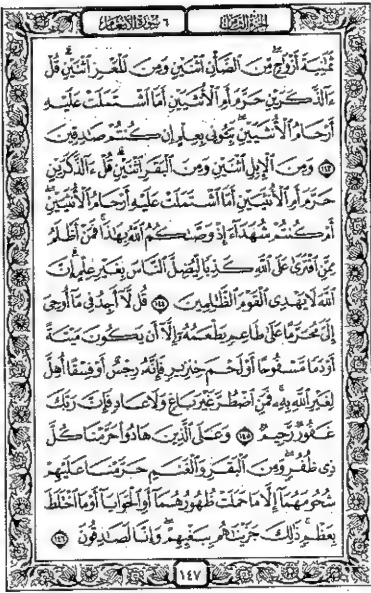 الجزء الثامن
٦ سورة الأنعام
ثَمَٰنِيَةَ أَزْوَٰجٍۢ مِّنَ ٱلضَّأْنِ ٱثْنَيْنِ وَمِنَ ٱلْمَعْزِ ٱثْنَيْنِ ۗ قُلْ
ءَآلذَّكَرَيْنِ حَرَّمَ أَمِ ٱلْأُنثَيَيْنِ أَمَّا ٱشْتَمَلَتْ عَلَيْهِ
أَرْحَامُ ٱلْأُنثَيَيْنِ ۖ نَبِّـُٔونِى بِعِلْمٍ إِن كُنتُمْ صَٰدِقِينَ
١٤٣ وَمِنَ ٱلْإِبِلِ ٱثْنَيْنِ وَمِنَ ٱلْبَقَرِ ٱثْنَيْنِ ۗ قُلْ ءَآلذَّكَرَيْنِ
حَرَّمَ أَمِ ٱلْأُنثَيَيْنِ أَمَّا ٱشْتَمَلَتْ عَلَيْهِ أَرْحَامُ ٱلْأُنثَيَيْنِ ۖ
أَمْ كُنتُمْ شُهَدَآءَ إِذْ وَصَّىٰكُمُ ٱللَّهُ بِهَٰذَا ۚ فَمَنْ أَظْلَمُ
مِمَّنِ ٱفْتَرَىٰ عَلَى ٱللَّهِ كَذِبًا لِّيُضِلَّ ٱلنَّاسَ بِغَيْرِ عِلْمٍ ۗ إِنَّ
ٱللَّهَ لَا يَهْدِى ٱلْقَوْمَ ٱلظَّٰلِمِينَ ١٤٤ قُل لَّآ أَجِدُ فِى مَآ أُوحِىَ
إِلَىَّ مُحَرَّمًا عَلَىٰ طَاعِمٍ يَطْعَمُهُۥٓ إِلَّآ أَن يَكُونَ مَيْتَةً
أَوْ دَمًا مَّسْفُوحًا أَوْ لَحْمَ خِنزِيرٍ فَإِنَّهُۥ رِجْسٌ أَوْ فِسْقًا أُهِلَّ
لِغَيْرِ ٱللَّهِ بِهِۦ ۚ فَمَنِ ٱضْطُرَّ غَيْرَ بَاغٍ وَلَا عَادٍ فَإِنَّ رَبَّكَ
غَفُورٌ رَّحِيمٌ ١٤٥ وَعَلَى ٱلَّذِينَ هَادُوا۟ حَرَّمْنَا كُلَّ
ذِى ظُفُرٍ ۖ وَمِنَ ٱلْبَقَرِ وَٱلْغَنَمِ حَرَّمْنَا عَلَيْهِمْ
شُحُومَهُمَآ إِلَّا مَا حَمَلَتْ ظُهُورُهُمَآ أَوِ ٱلْحَوَايَآ أَوْ مَا ٱخْتَلَطَ
بِعَظْمٍ ۚ ذَٰلِكَ جَزَيْنَٰهُم بِبَغْيِهِمْ ۖ وَإِنَّا لَصَٰدِقُونَ ١٤٦
١٤٧